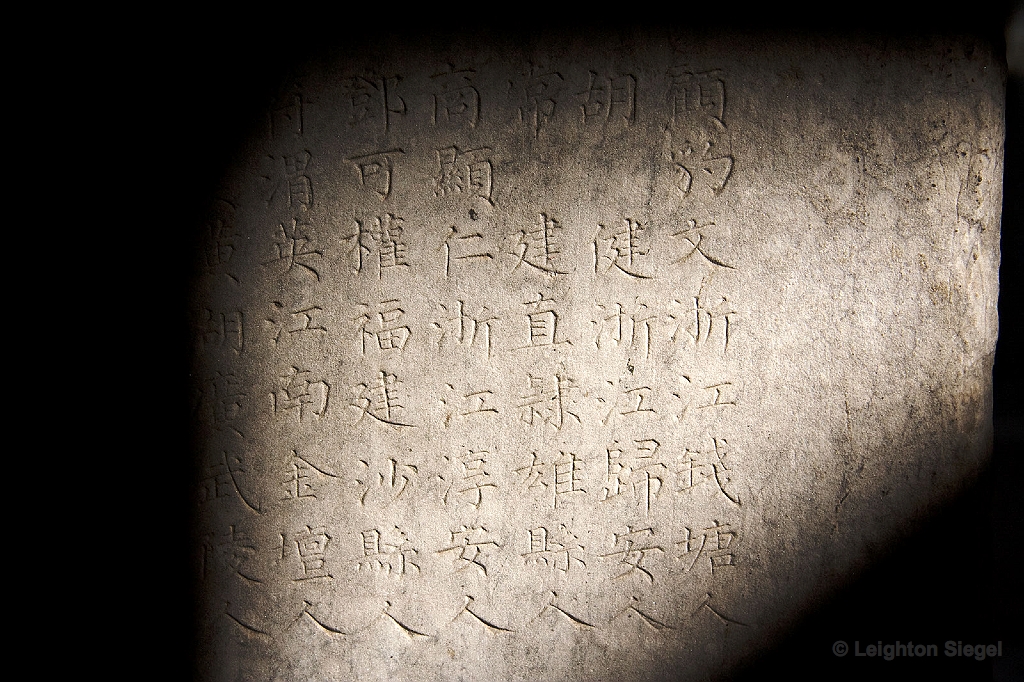 顧豹文浙江錢塘人
胡 健浙江歸安人
常 建直隸雄縣人
商顯仁浙江淳安人
鄧可權福建沙縣人
符渭英江南金壇人
湖廣武陵人
© Leighton Siegel